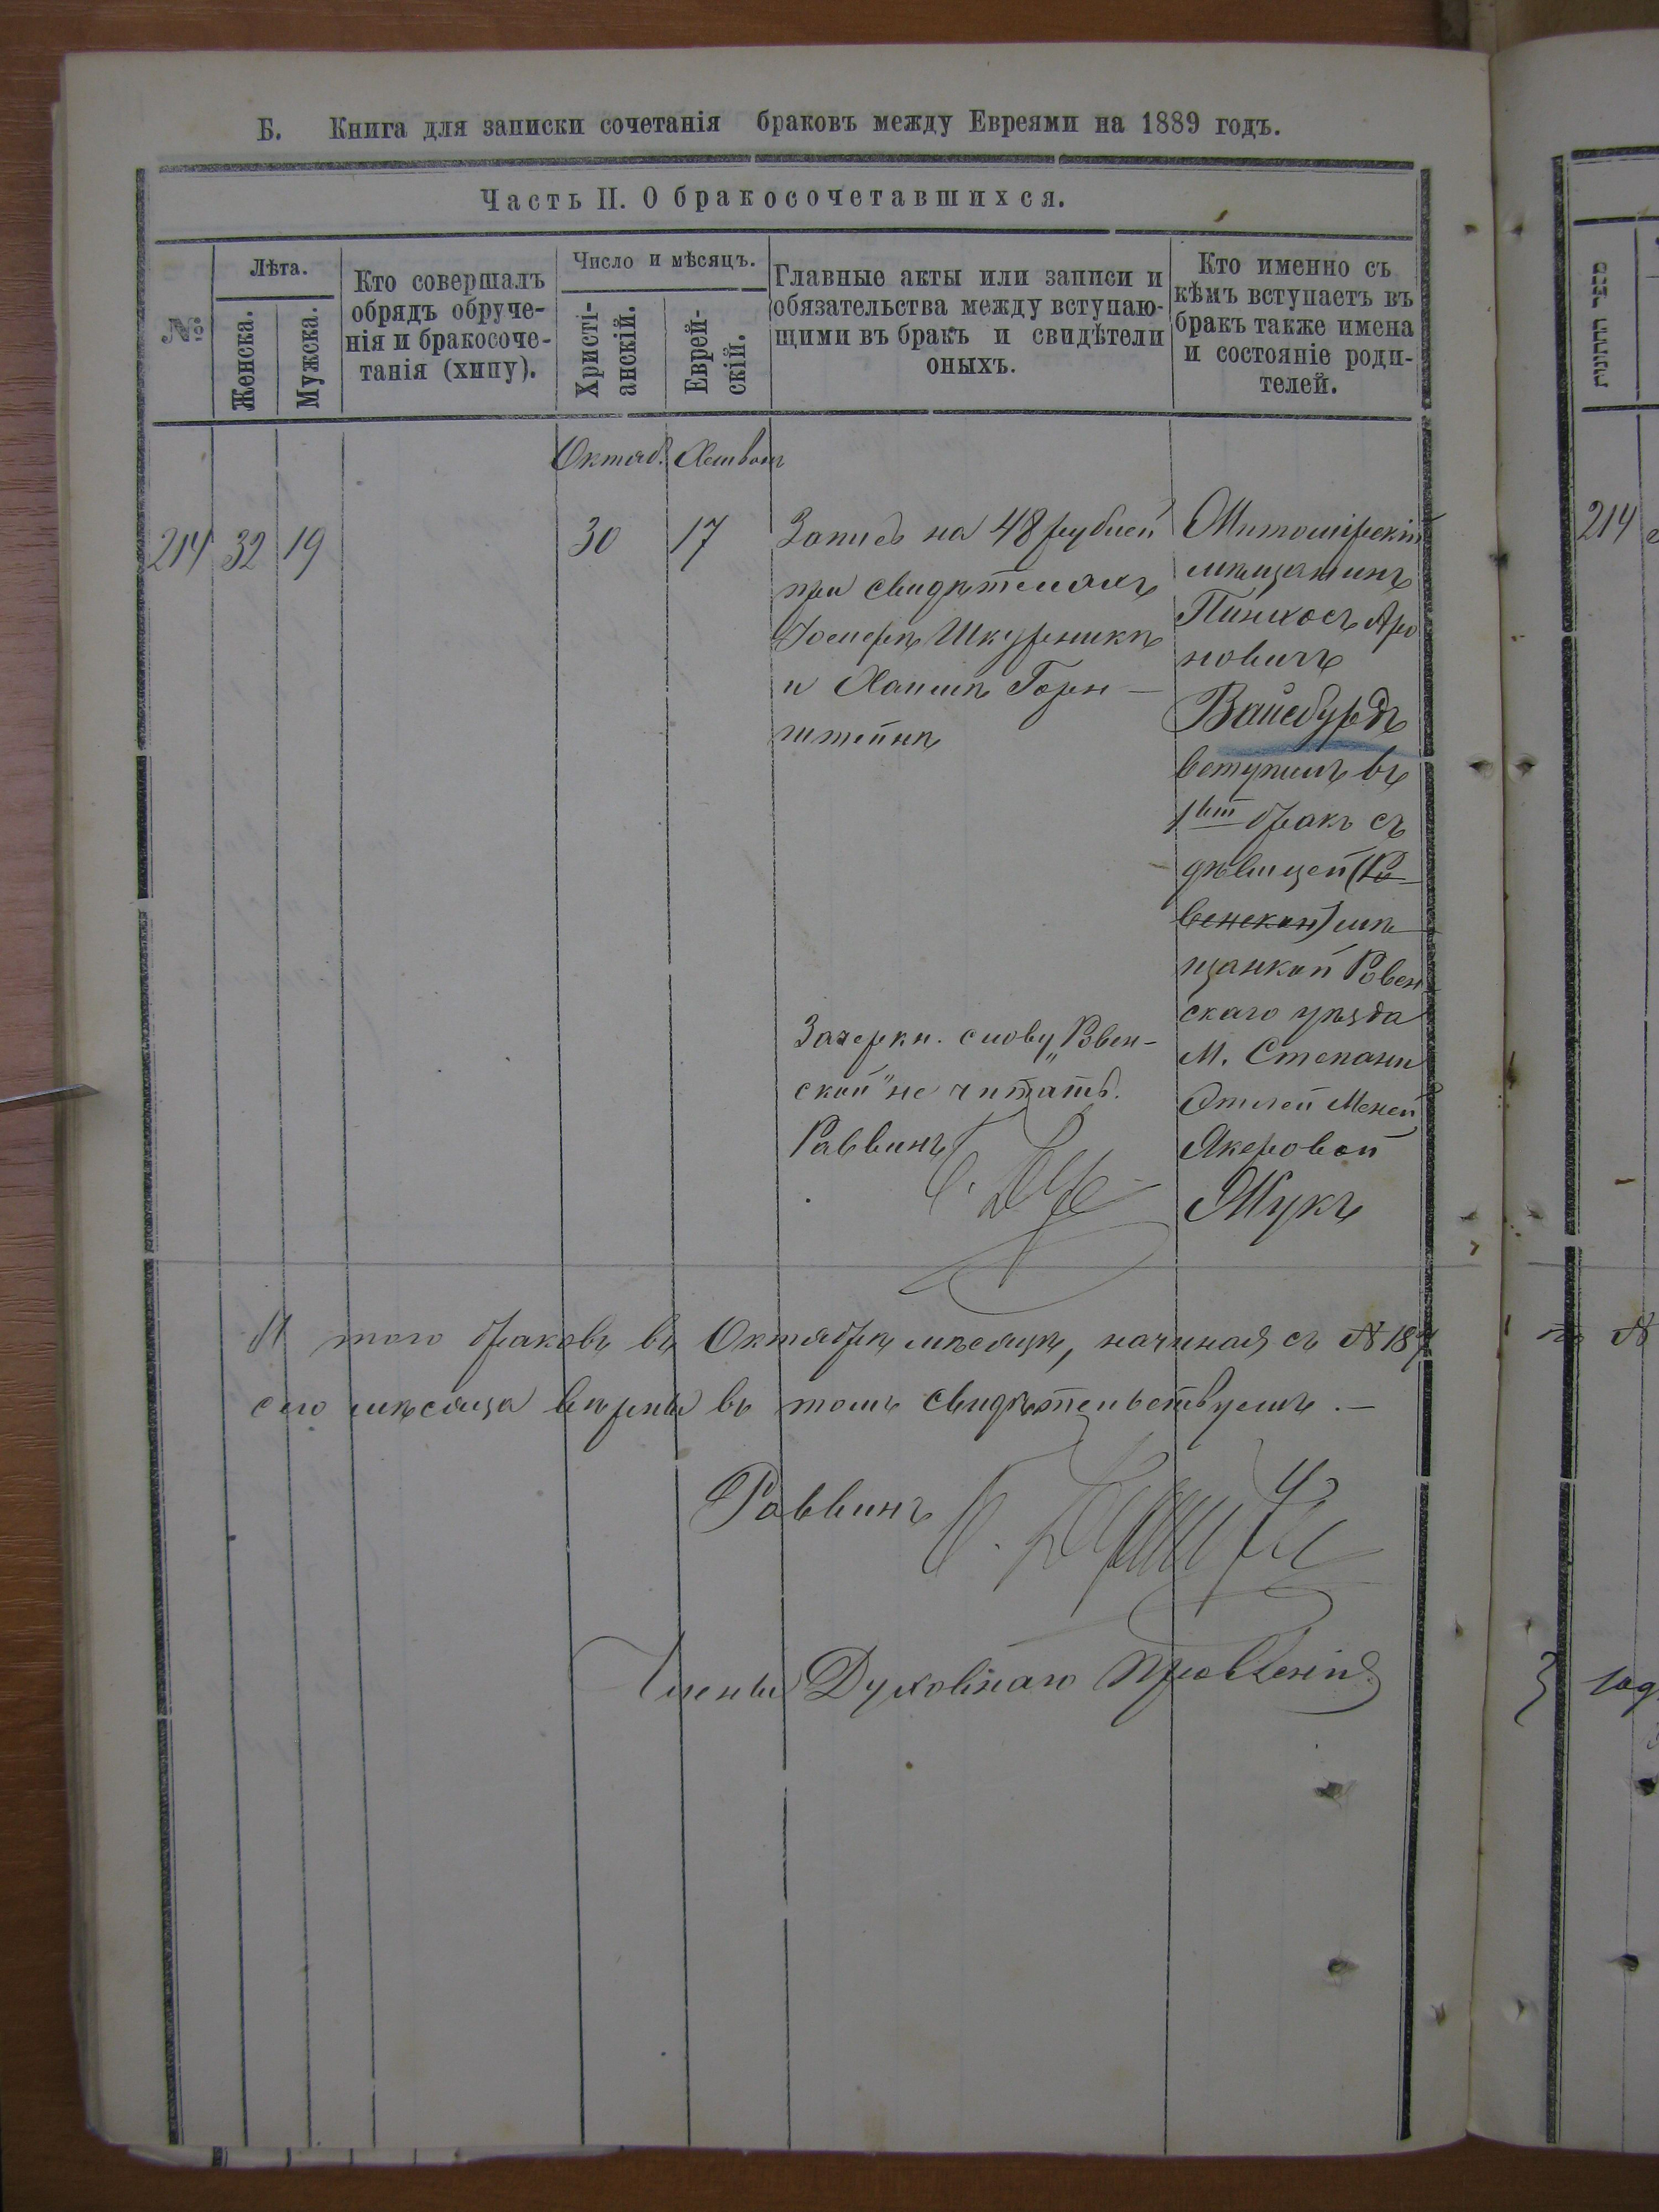 Б. Книга для записки сочетанія браковъ между Евреями на 1889 годъ.
Часть II. О бракосочетавшихся.
№
Лѣта.
Женска.
Мужска.
Кто совершалъ
обрядъ обруче-
нія и бракосоче-
танія (хипу).
Число и мѣсяцъ.
Христі-
анскій.
Еврей-
скій.
Главные акты или записи и
обязательства между вступаю-
щими въ бракъ и свидѣтели
оныхъ.
Кто именно съ
кѣмъ вступаетъ въ
бракъ также имена
и состояніе роди-
телей.
Октяб. Хешвон
214 32 19 30 17
Запись на 48 рублей
при свидѣтеляхъ
Іосифѣ Шкурникѣ
и Хаимѣ Горн-
штейнѣ
Житомірскій
мѣщанинъ
Пинхосъ Аро
новичъ
Вайсбурдъ
вступилъ въ
1вый бракъ съ
дѣвицей (Ро
венской) мѣ
щанкой Ровен
скаго уѣзда
М. Степани
Этлей Меней
Якеровой
Жукъ
Зачеркн. слову „Ровен-
ской" не читать.
Раввинъ
Итого браковъ въ Октябрѣ мѣсяцѣ, начиная съ № 187
сего мѣсяца вѣрны въ томъ свидѣтельствуемъ.—
Раввинъ
Члены Духовнаго Правленія
מספר החתונות
214
№